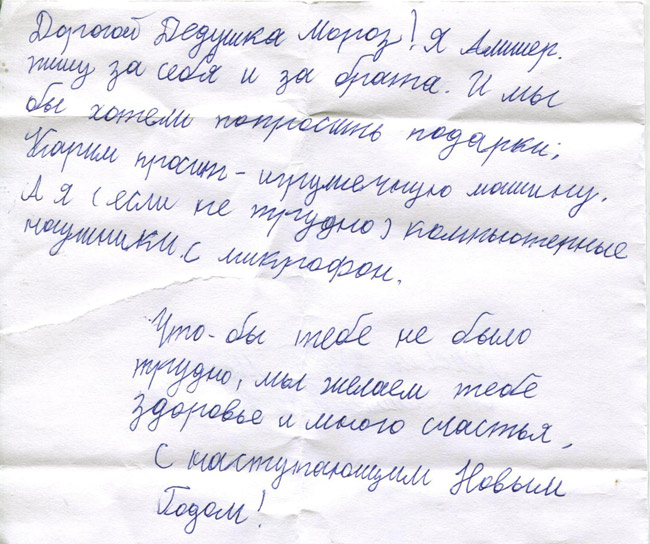 Дорогой Дедушка Мороз! Я Алишер.
пишу за себя и за брата. И мы
бы хотели попросить подарки:
Карим просит - игрушечную машину.
А я (если не трудно) компьютерные
наушники с микрофон.
Что-бы тебе не было
трудно, мы желаем тебе
здоровье и много счастья,
С наступающим Новым
Годом!